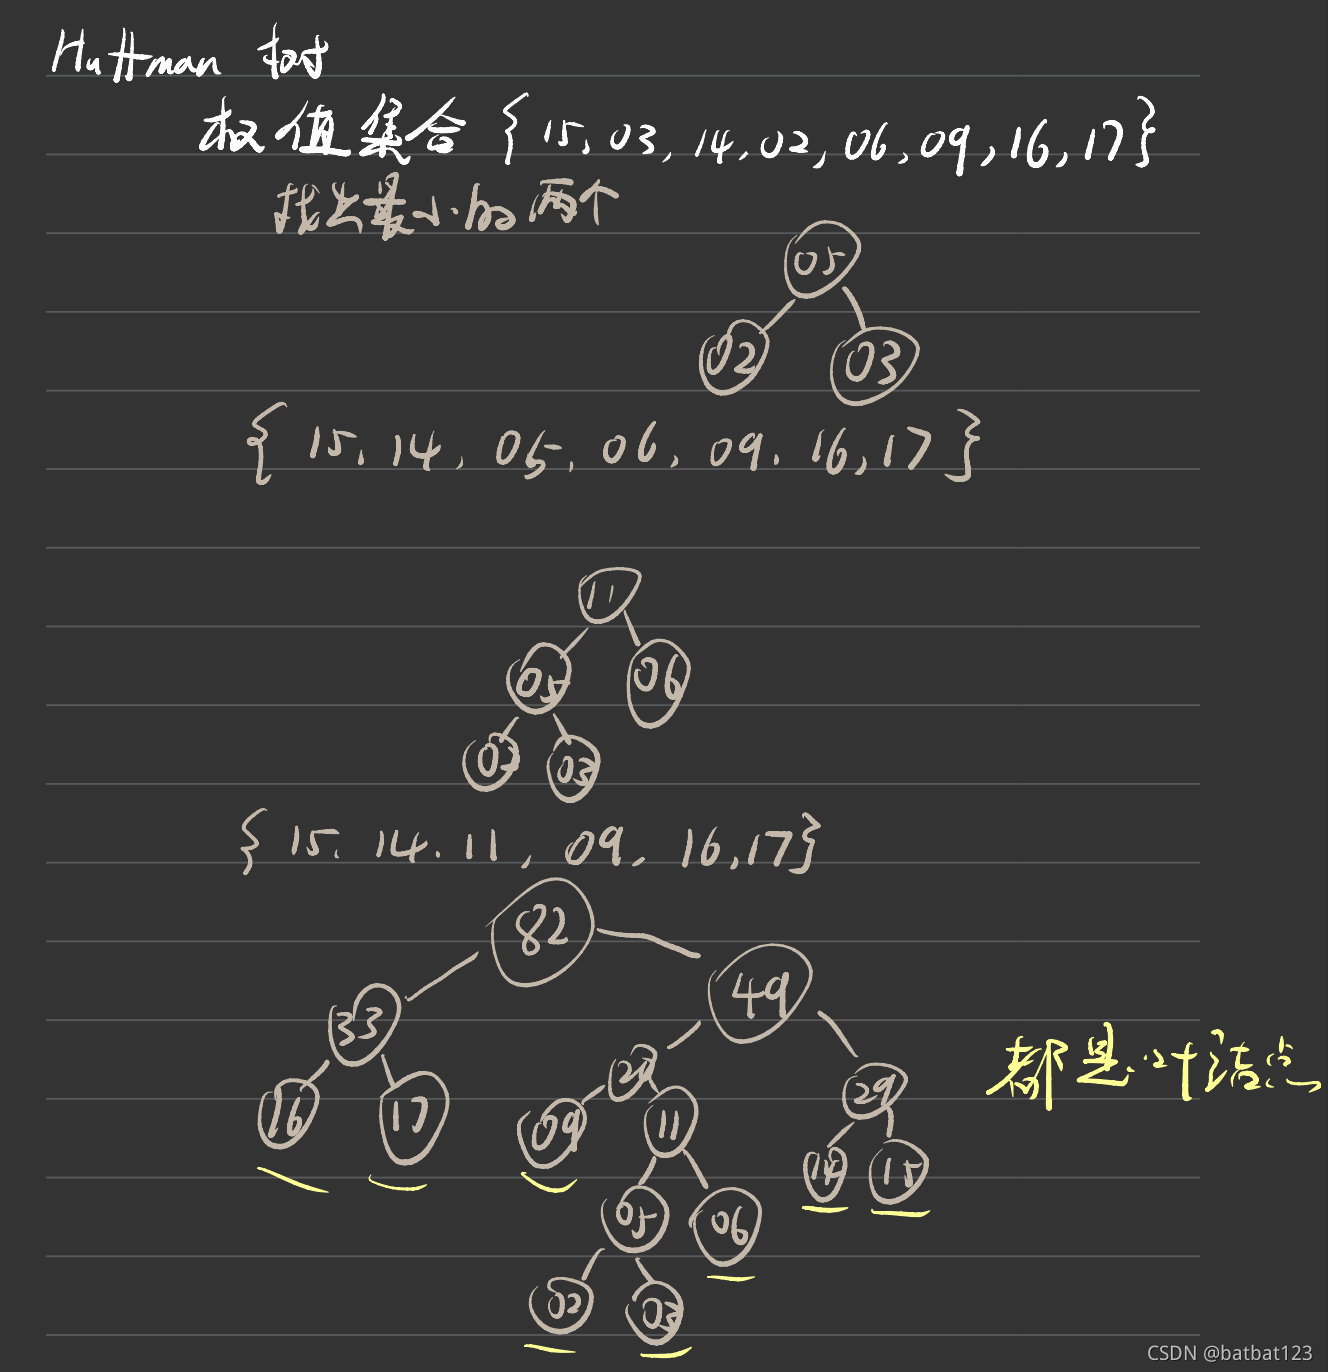 Huffman 树
权值集合 {15, 03, 14, 02, 06, 09, 16, 17}
找出最小的两个
05
02 03
{15, 14, 05, 06, 09, 16, 17}
11
05 06
02 03
{15, 14, 11, 09, 16, 17}
82
33 49
20 29
都是叶结点
16 17 09 11 14 15
05 06
02 03
CSDN @batbat123